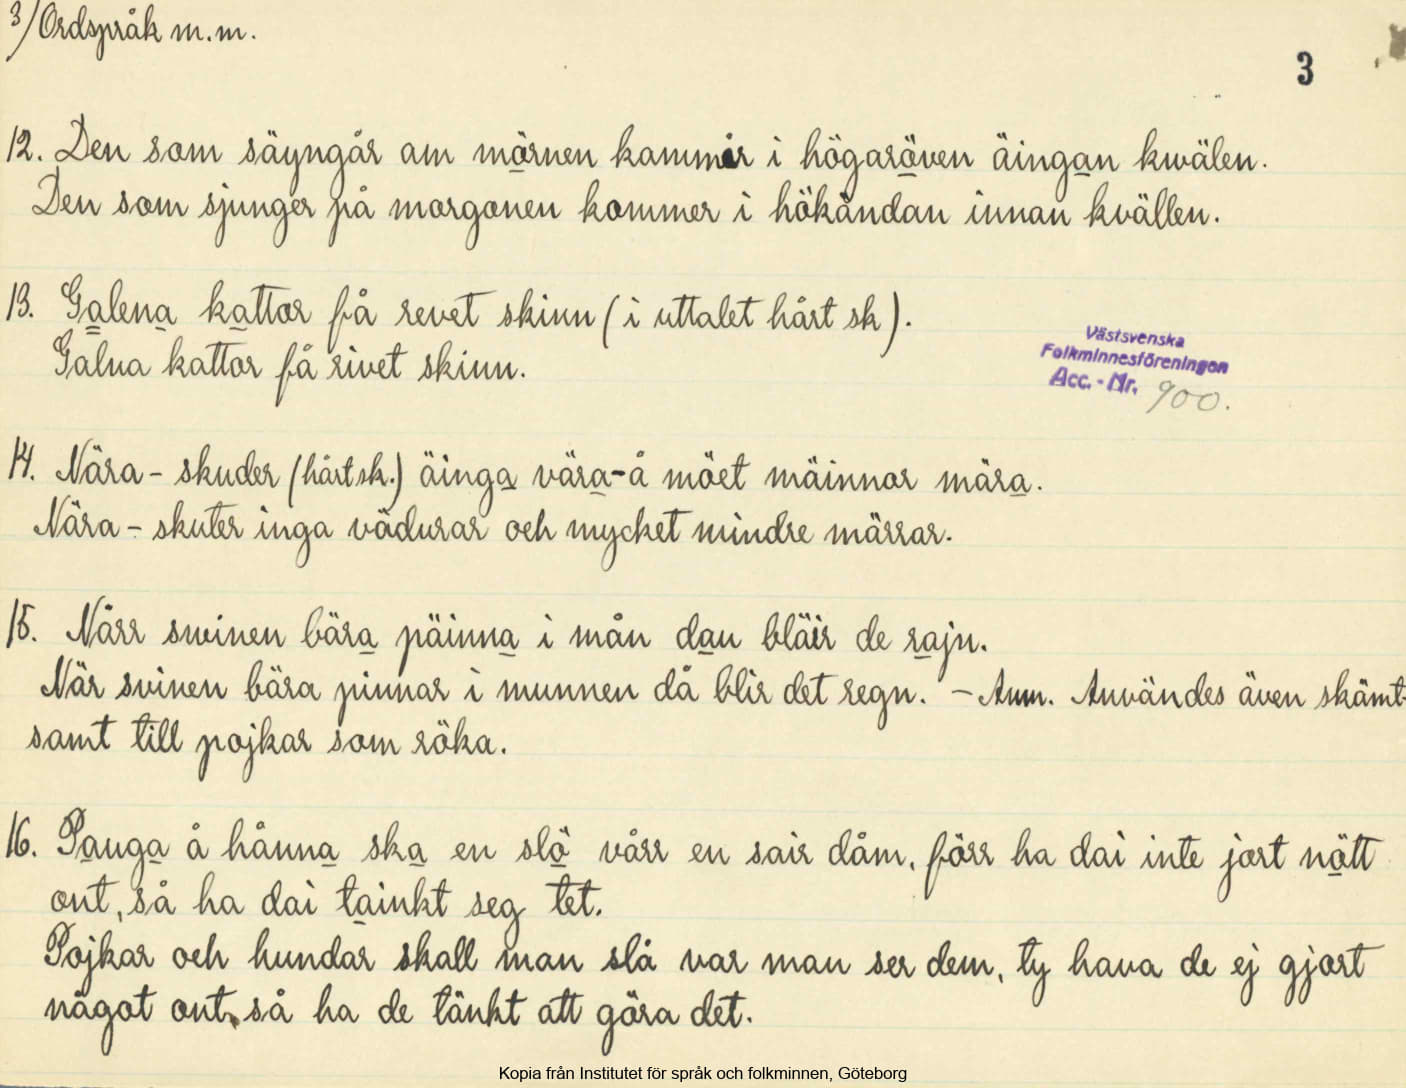 3/Ordspråk m.m.
3
12. Den som säyngår am mörnen kammer i högaröven äingan kwälen.
Den som sjunger på morgonen kommer i hökändan innan kvällen.
13. Galena kattor få revet skinn (i uttalet hårt sk).
Galna kattor få rivet skinn.
Västsvenska
Folkminnesföreningen
Acc.-Nr. 900.
14. Nära - skuder (hårt sk.) äinga vära-å möet mäinnor mära.
Nära - skuter inga vädurar och mycket mindre märrar.
15. Närr swinen bära päinna i mån dau bläir de rajn.
När svinen bära pinnar i munnen då blir det regn. - Anm. Användes även skämt-
samt till pojkar som röka.
16. Pauga å hånna ska en slö vårr en sair dåm, förr ha dai inte jort nött
ont, så ha dai tainkt seg tet.
Pojkar och hundar skall man slå var man ser dem, ty hava de ej gjort
något ont, så ha de tänkt att göra det.
Kopia från Institutet för språk och folkminnen, Göteborg